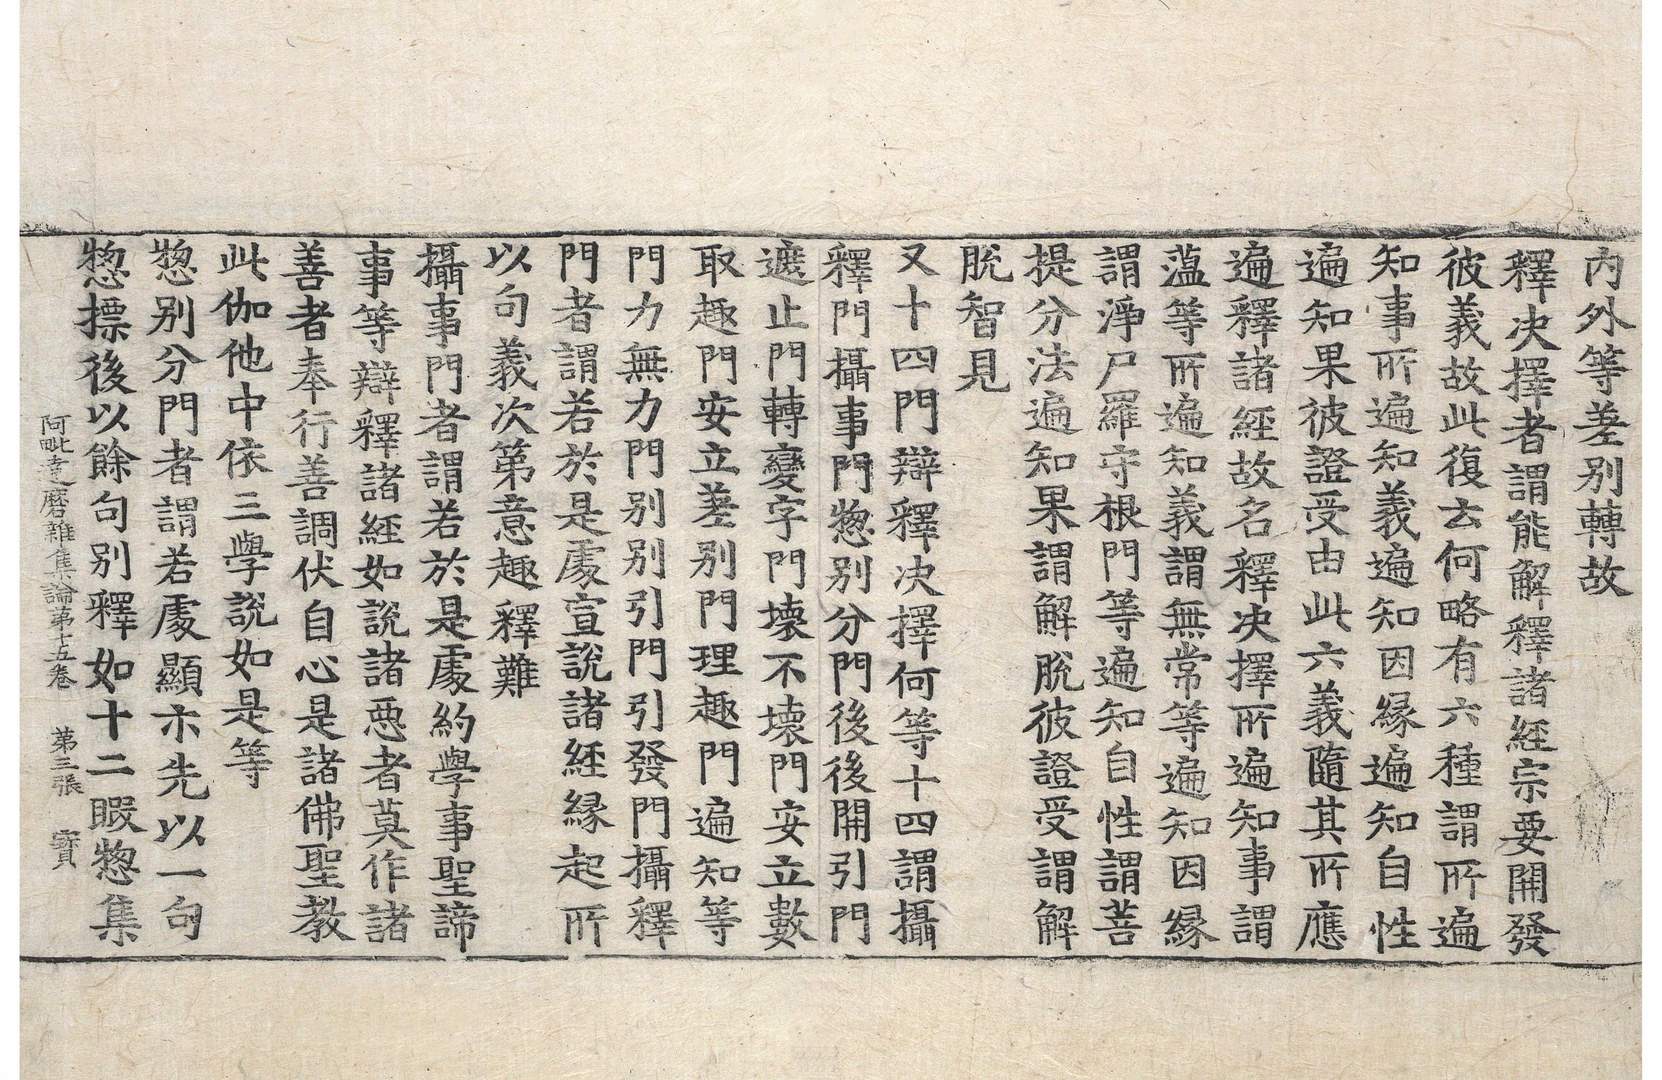 内外等差别轉故
釋决擇者謂能解釋諸經宗要開發
彼義故此復云何略有六種謂所遍
知事所遍知義遍知因縁遍知自性
遍知果彼證受由此六義隨其所應
遍釋諸經故名釋决擇所遍知事謂
薀等所遍知義謂無常等遍知因縁
謂淨尸羅守根門等遍知自性謂菩
提分法遍知果謂解脫彼證受謂解
脫智見
又十四門辯釋决擇何等十四謂攝
釋門攝事門惣别分門後後開引門
遮止門轉變字門壞不壞門安立數
取趣門安立差别門理趣門遍知等
門力無力門别别引門引發門攝釋
門者謂若於是處宣說諸經縁起所
以句義次第意趣釋難
攝事門者謂若於是處約學事聖諦
事等辯釋諸經如說諸惡者莫作諸
善者奉行善調伏自心是諸佛聖教
此伽他中依三學說如是等
惣别分門者謂若處顯示先以一句
惣摽後以餘句别釋如十二暇惣集
阿毗達磨雜集論第十五卷 第三張 賓